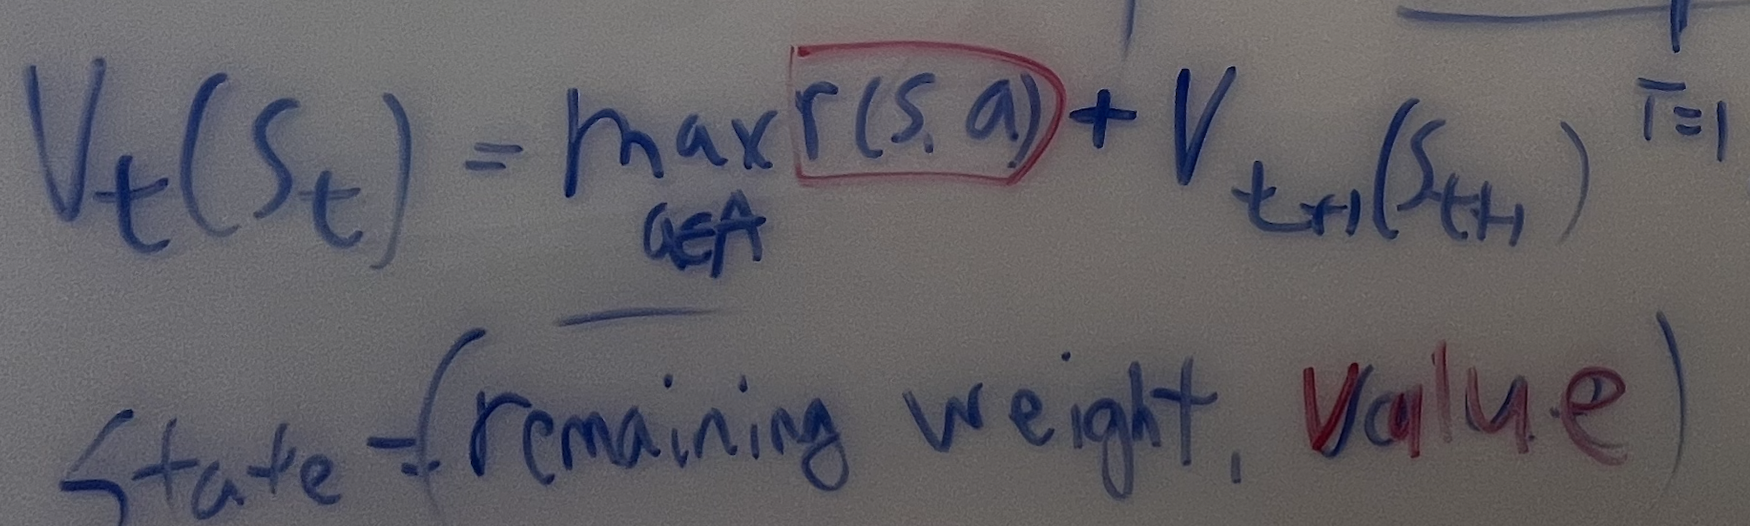 V_t(S_t) = max_{a∈A} r(s, a) + V_{t+1}(S_{t+1})
T=1
State = (remaining weight, value)